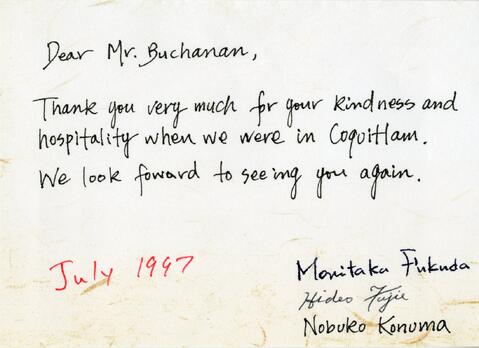 Dear Mr. Buchanan,
Thank you very much for your kindness and
hospitality when we were in Coquitlam.
We look foward to seeing you again.
July 1997
Moritaka Fukuda
Hideo Fujie
Nobuko Konuma